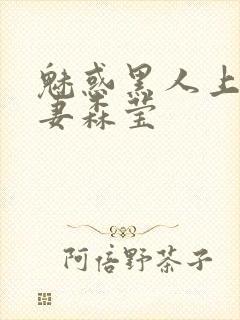 魅惑黑人上
妻森莹
阿倍野茶子